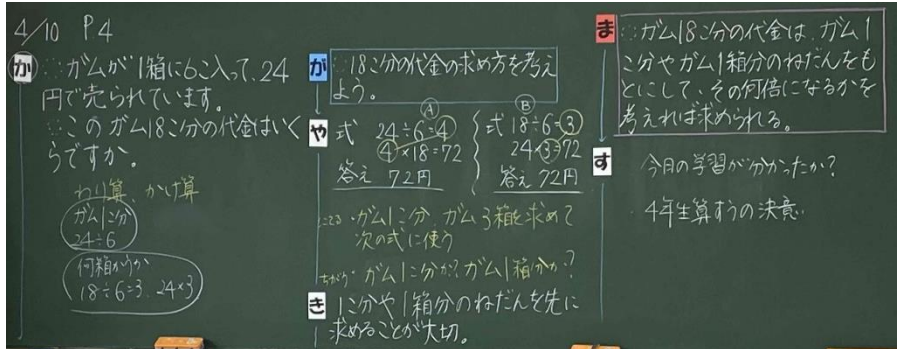 4/10 P.4
か
ガムが1箱に6こ入って、24
円で売られています。
このガム18こ分の代金はいく
らですか。
わり算、かけ算
ガム1こ分
24÷6
何箱かうか
18÷6=3、24×3
が
18こ分の代金の求め方を考え
よう。
や
Ⓐ
式 24÷6=4
4×18=72
答え 72円
Ⓑ
式 18÷6=3
24×3=72
答え 72円
にてる・ガム1こ分、ガム3箱を求めて
次の式に使う
ちがう・ガム1こ分か?ガム1箱分か?
き
1こ分や1箱分のねだんを先に
求めることが大切。
ま
ガム18こ分の代金は、ガム1
こ分やガム1箱分のねだんをも
とにして、その何倍になるかを
考えれば求められる。
す
今日の学習が分かったか?
・4年生算すうの決意